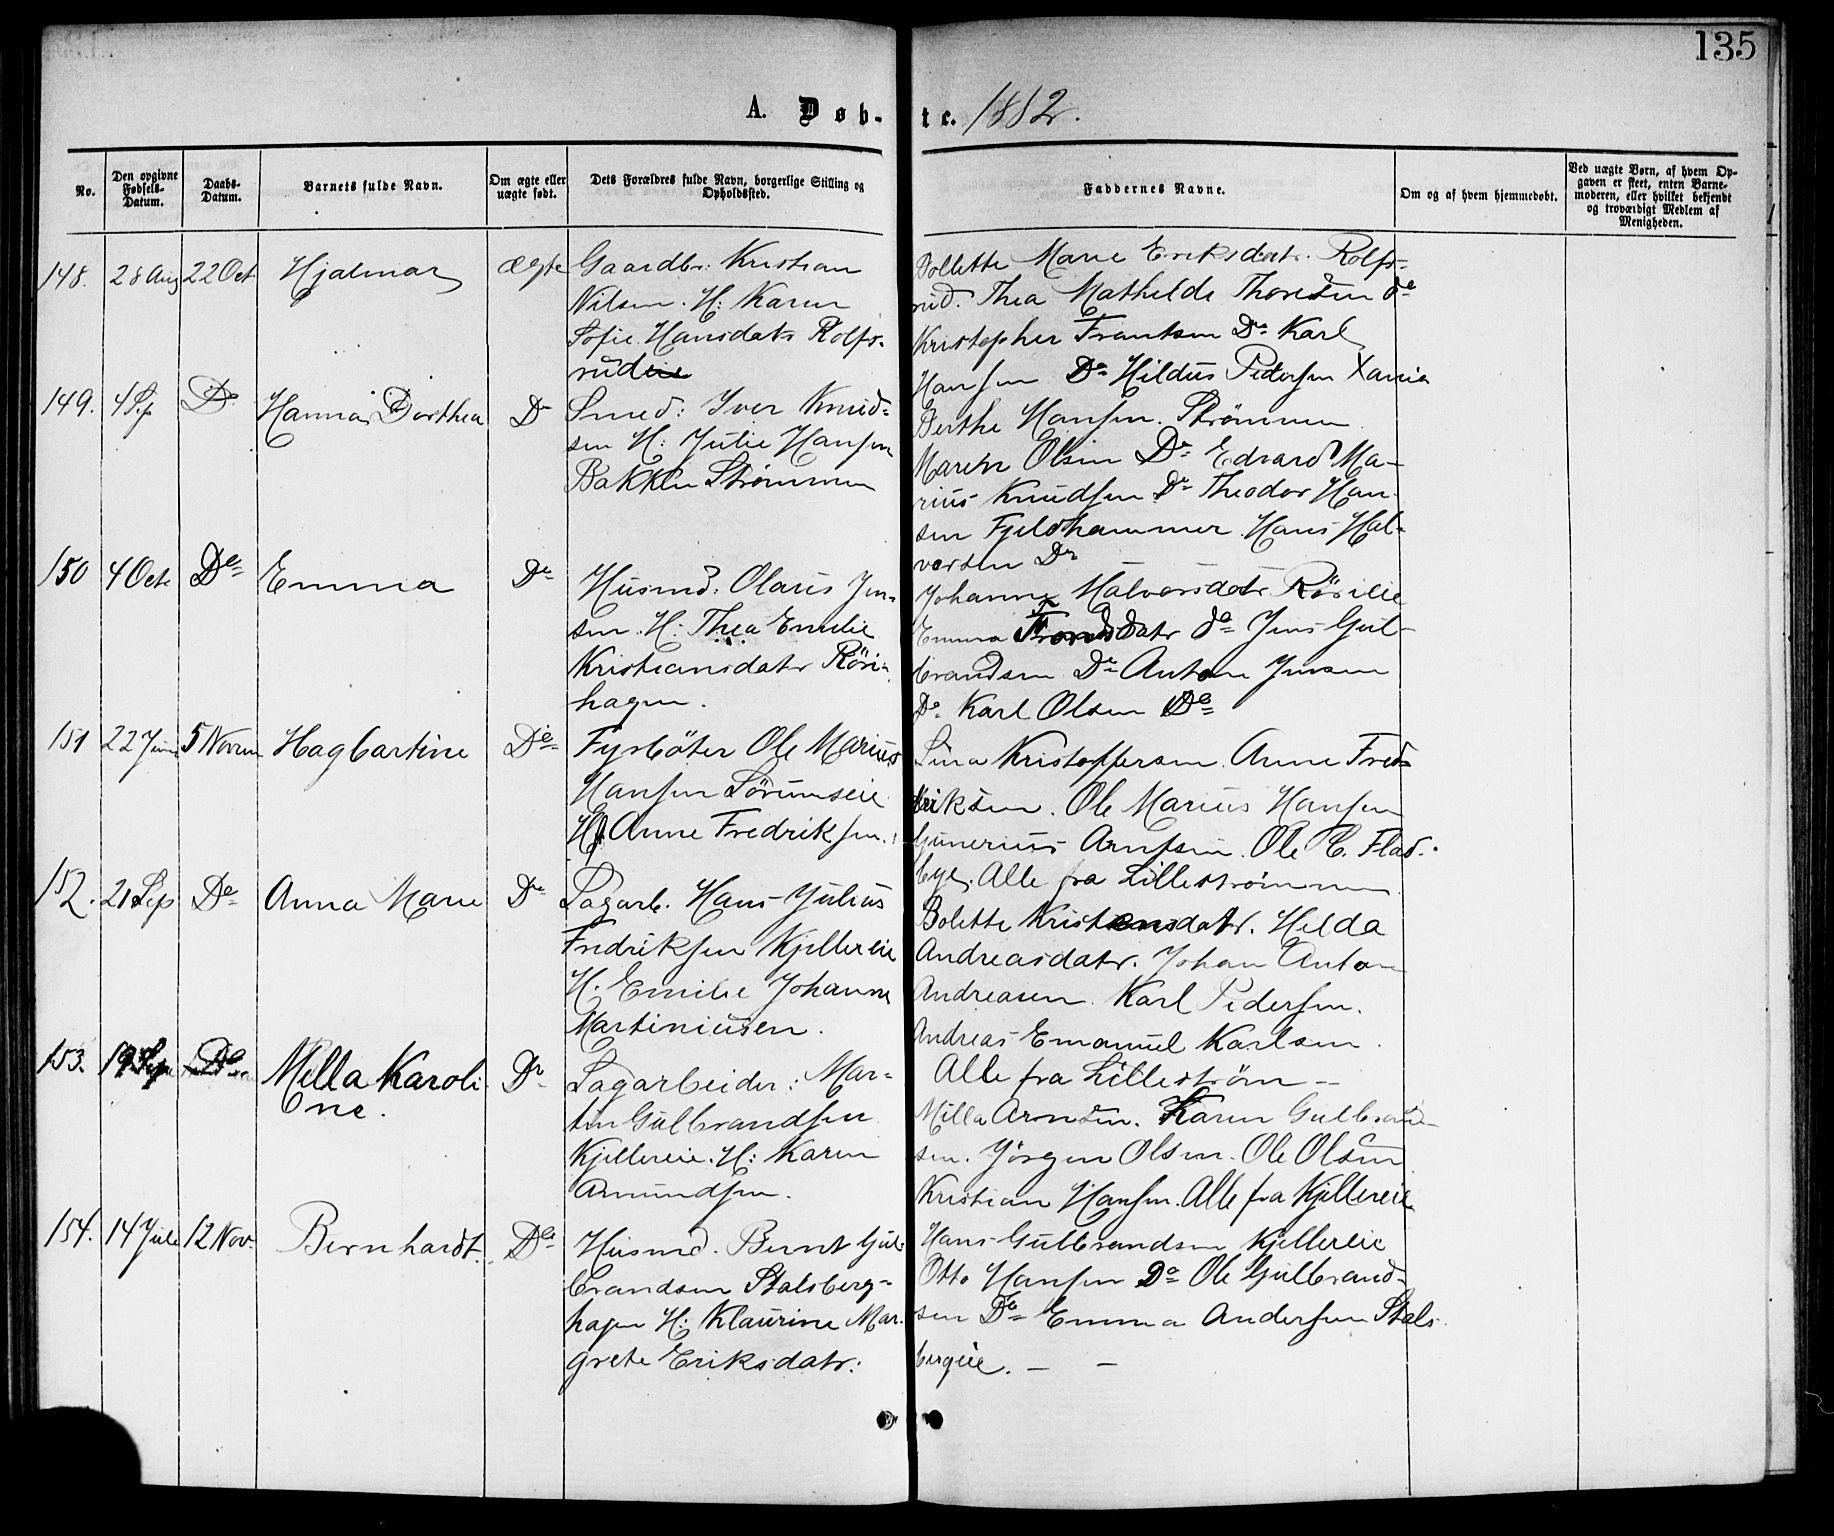 135
A. Døb-te. 1882.
No.
Den opgivne Fødsels-Datum.
Daabs-Datum.
Barnets fulde Navn.
Om ægte eller uægte født.
Dets Forældres fulde Navn, borgerlige Stilling og Opholdssted.
Faddernes Navne.
Om og af hvem hjemmedøbt.
Ved uægte Børn, af hvem Opgaven er skeet, enten Barnemoderen, eller hvilket bekjendt og troværdigt Medlem af Menigheden.
148. 28 Aug 22 Oct Hjalmar ægte Gaardbr: Kristian
Nilsen. H: Karen
Sofie Hansdatr Rolfs-
rud
Bollette Marie Eriksdatr. Rolfs-
rud. Thea Mathilde Thoresen do
Kristopher Frantsen Do Karl
Hansen Do Hildus Pedersen Xania
149. 4 Sep Do Hanna Dorthea Do Smed: Iver Knud-
sen H: Julie Hansen
Bakken Strømmen
Berthe Hansen. Strømmen
Maren Olsen Do Edvard Ma-
rius Knudsen Do Theodor Han-
sen Fjeldhammer. Hans Hal-
versen Do
150 4 Oct Do Emma Do Husmd: Olaus Jen-
sen. H: Thea Emilie
Kristiansdatr Röri-
hagen.
Johanne Halvorsdatr Röricie
Emma Trondsdatr do Jens Gul-
brandsen Do Anton Jensen
Do Karl Olsen Do
151 22 Juni 5 Novem Hagbartine Do Fyrböter Ole Marius
Hansen Sørumseie
H: Anne Fredriksen.
Lina Kristoffersen. Anne Fred-
riksen. Ole Marius Hansen
Gunerius Arntsen. Ole C. Flad-
bye. Alle fra Lillestrømmen.
152. 21 Sep Do Anna Marie Do Sagarb. Hans Julius
Fredriksen Kjellereie
H. Emilie Johanne
Martiniusen.
Bolette Kristensdatr. Hilda
Andreasdatr. Johan Anton
Andreasen. Karl Pedersen.
Andreas Emanuel Karlsen.
Alle fra Lillestrøm –
153. 19 Sep Do Milla Karoli
ne. Do Sagarbeider: Mar-
tin Gulbrandsen
Kjellereie. H: Karen
Amundsen.
Milla Arnesen. Karen Gulbrand-
sen. Jörgen Olsen. Ole Olsen
Kristian Hansen. Alle fra Kjellereie
154. 14 Juli 12 Nov. Bernhardt. Do Husmd. Bernt Gul-
brandsen Stalsberg-
hagen H: Klaurine Mar-
grete Eriksdatr:
Hans Gulbrandsen Kjellereie
Otto Hansen Do Ole Gulbrand-
sen Do Emma Andersen Stals-
bergeie. – –